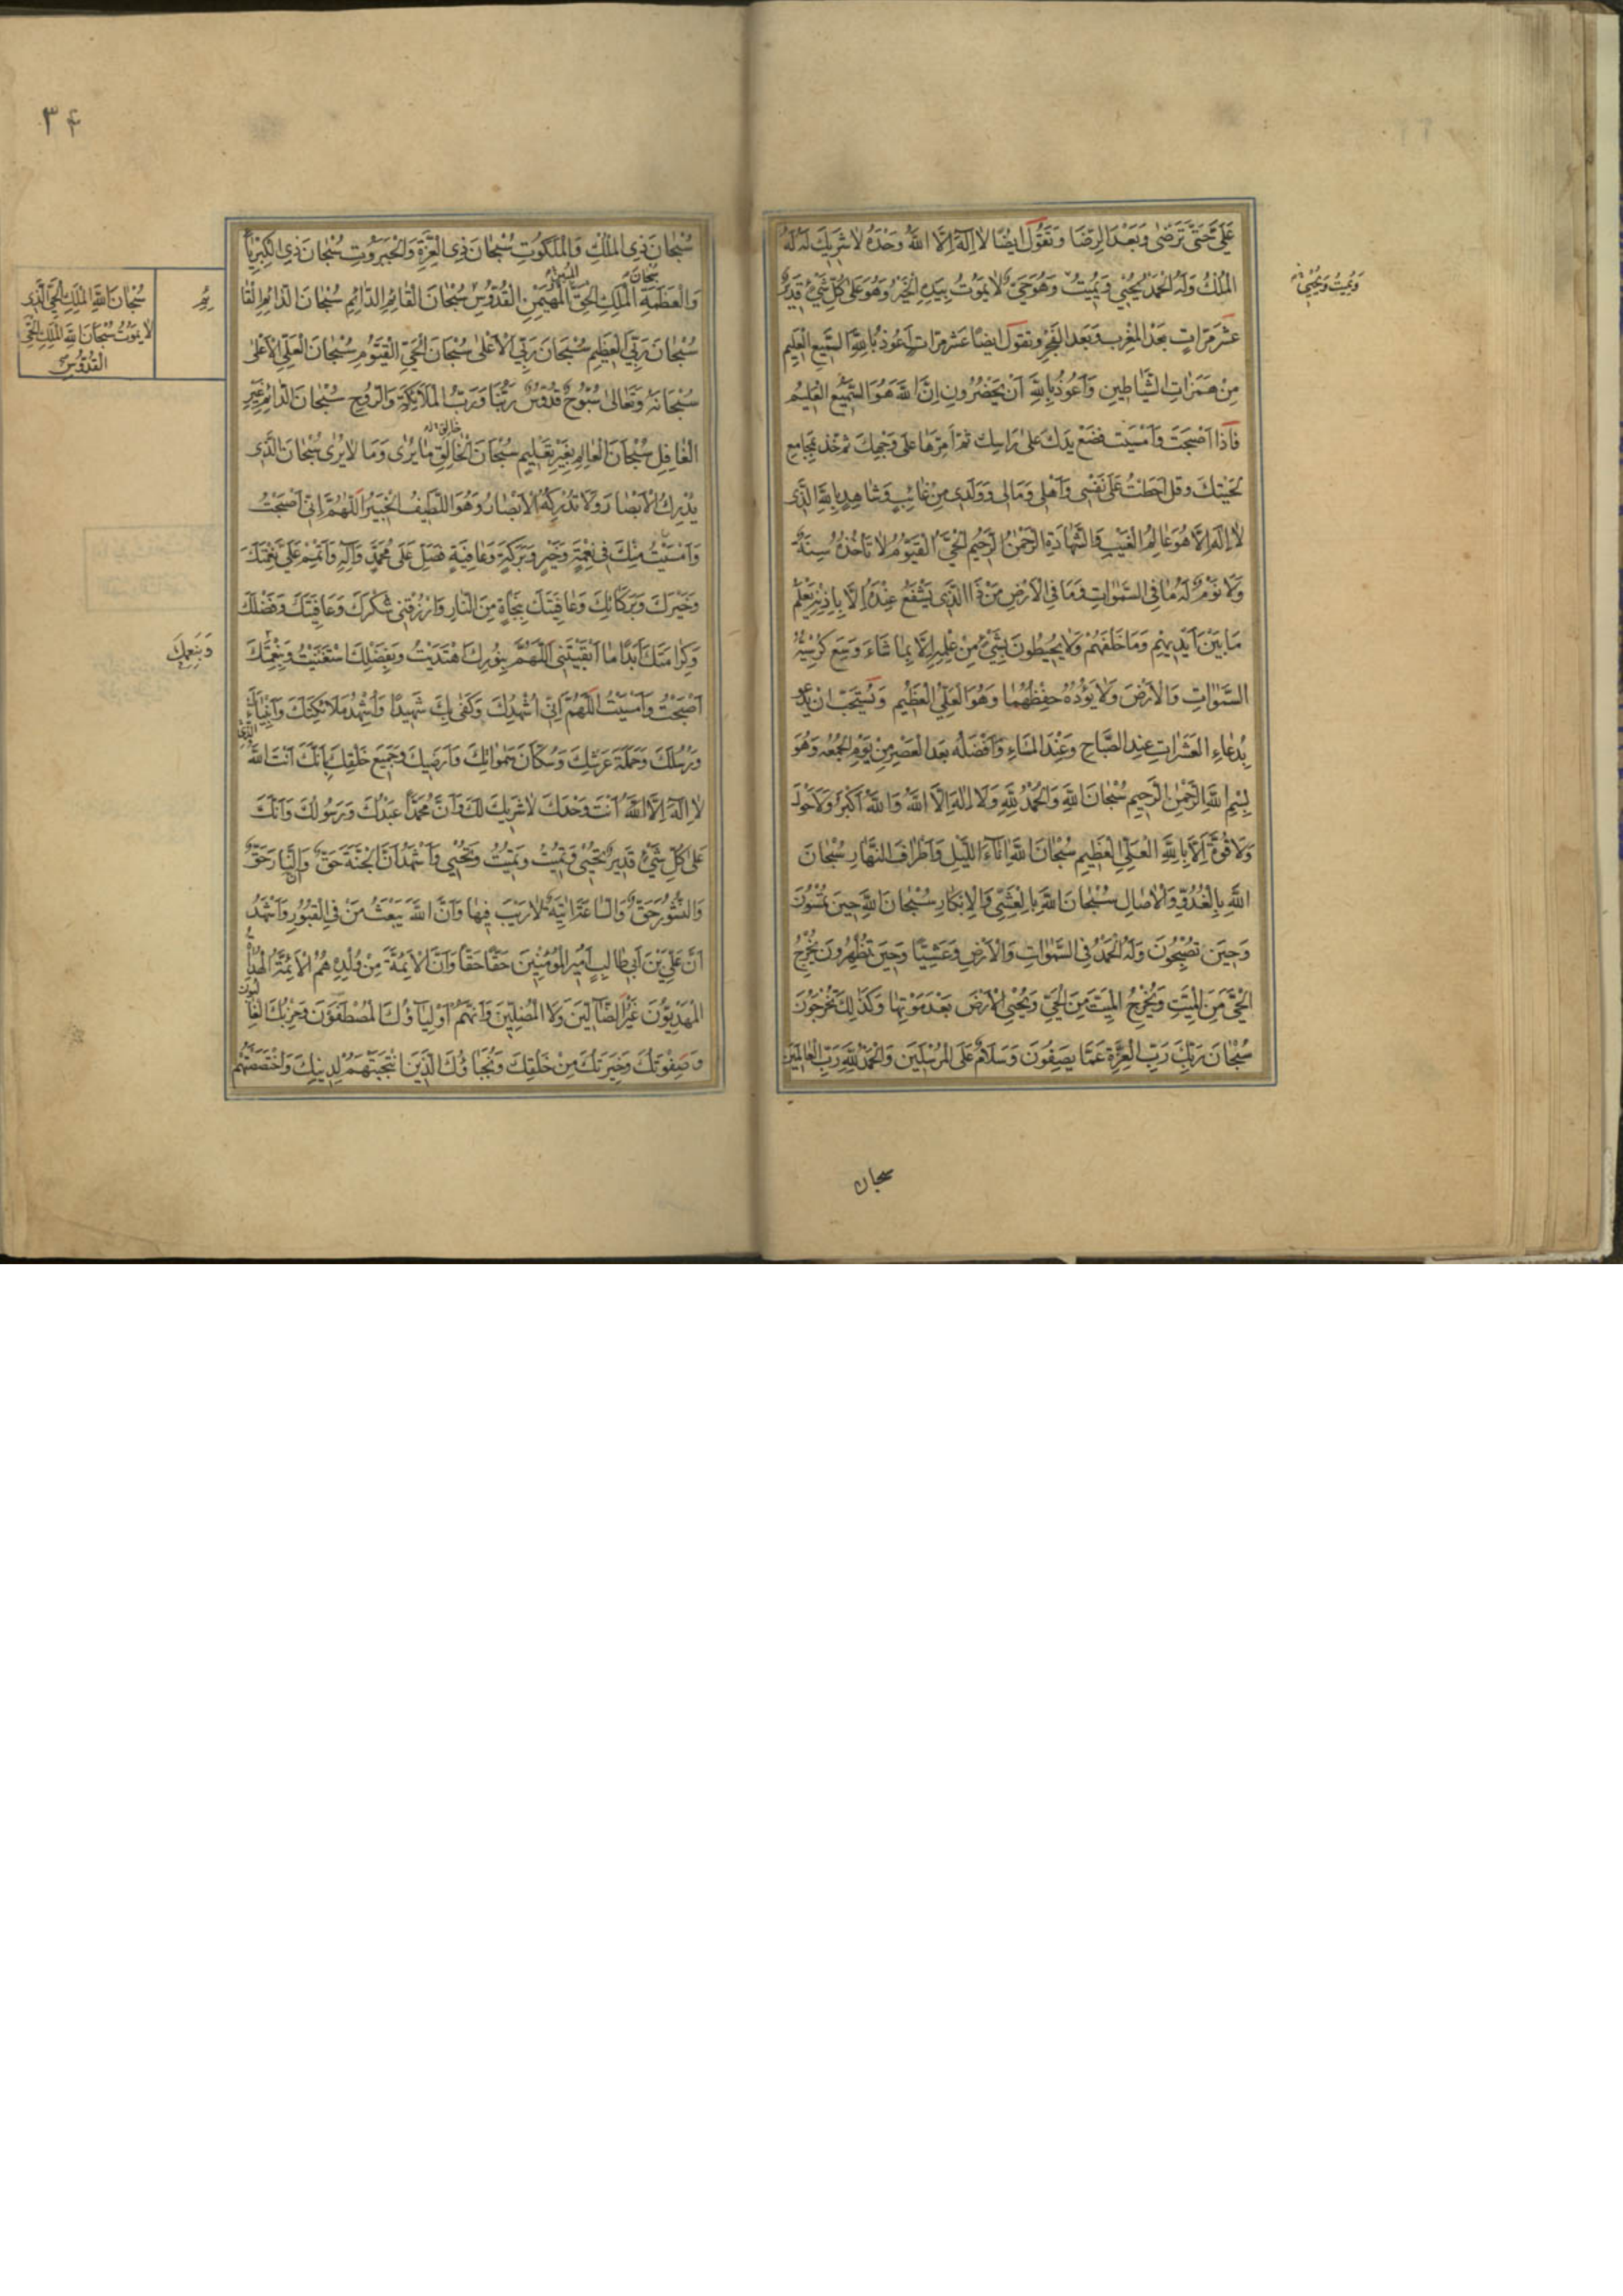 عَلَيَّ حَتّى تَرْضى وَبَعْدَ الرِّضَا وَتَقُولُ اَيْضًا لا اِلهَ اِلَّا اللهُ وَحْدَهُ لا شَرِيكَ لَهُ لَهُ
الْمُلْكُ وَلَهُ الْحَمْدُ يُحْيِي وَيُمِيتُ وَهُوَ حَيٌّ لا يَمُوتُ بِيَدِهِ الْخَيْرُ وَهُوَ عَلى كُلِّ شَيْءٍ قَدِيرٌ
وَيُمِيتُ وَيُحْيِي
عَشْرَ مَرّاتٍ بَعْدَ الْمَغْرِبِ وَبَعْدَ الْفَجْرِ وَتَقُولُ اَيْضًا عَشْرَ مَرّاتٍ اَعُوذُ بِاللهِ السَّمِيعِ الْعَلِيمِ
مِنْ هَمَزاتِ الشَّيَاطِينِ وَاَعُوذُ بِاللهِ اَنْ يَحْضُرُونِ اِنَّ اللهَ هُوَ السَّمِيعُ الْعَلِيمُ
فَاِذَا اَصْبَحْتَ وَاَمْسَيْتَ فَضَعْ يَدَكَ عَلى رَاسِكَ ثُمَّ اَمِرَّهَا عَلى وَجْهِكَ ثُمَّ خُذْ بِمَجَامِعِ
لِحْيَتِكَ وَقُلْ اَحَطْتُ عَلى نَفْسِي وَاَهْلِي وَمَالِي وَوَلَدِي مِنْ غَائِبٍ وَشَاهِدٍ بِاللهِ الَّذِي
لا اِلهَ اِلَّا هُوَ عَالِمُ الْغَيْبِ وَالشَّهَادَةِ الرَّحْمنُ الرَّحِيمُ الْحَيُّ الْقَيُّومُ لا تَاْخُذُهُ سِنَةٌ
وَلا نَوْمٌ لَهُ مَا فِي السَّموَاتِ وَمَا فِي الْاَرْضِ مَنْ ذَا الَّذِي يَشْفَعُ عِنْدَهُ اِلَّا بِاِذْنِهِ يَعْلَمُ
مَا بَيْنَ اَيْدِيهِمْ وَمَا خَلْفَهُمْ وَلا يُحِيطُونَ بِشَيْءٍ مِنْ عِلْمِهِ اِلَّا بِمَا شَاءَ وَسِعَ كُرْسِيُّهُ
السَّموَاتِ وَالْاَرْضَ وَلا يَؤُدُهُ حِفْظُهُمَا وَهُوَ الْعَلِيُّ الْعَظِيمُ وَيُسْتَحَبُّ اَنْ يَدْعُو
بِدُعَاءِ الْعَشَرَاتِ عِنْدَ الصَّبَاحِ وَعِنْدَ الْمَسَاءِ وَاَفْضَلُهُ بَعْدَ الْعَصْرِ مِنْ يَوْمِ الْجُمُعَةِ وَهُوَ
بِسْمِ اللهِ الرَّحْمنِ الرَّحِيمِ سُبْحَانَ اللهِ وَالْحَمْدُ لِلّهِ وَلا اِلهَ اِلَّا اللهُ وَاللهُ اَكْبَرُ وَلا حَوْلَ
وَلا قُوَّةَ اِلَّا بِاللهِ الْعَلِيِّ الْعَظِيمِ سُبْحَانَ اللهِ انَاءَ اللَّيْلِ وَاَطْرَافَ النَّهَارِ سُبْحَانَ
اللهِ بِالْغُدُوِّ وَالْاصَالِ سُبْحَانَ اللهِ بِالْعَشِيِّ وَالْاِبْكَارِ سُبْحَانَ اللهِ حِينَ تُمْسُونَ
وَحِينَ تُصْبِحُونَ وَلَهُ الْحَمْدُ فِي السَّموَاتِ وَالْاَرْضِ وَعَشِيًّا وَحِينَ تُظْهِرُونَ يُخْرِجُ
الْحَيَّ مِنَ الْمَيِّتِ وَيُخْرِجُ الْمَيِّتَ مِنَ الْحَيِّ وَيُحْيِي الْاَرْضَ بَعْدَ مَوْتِهَا وَكَذلِكَ تُخْرَجُونَ
سُبْحَانَ رَبِّكَ رَبِّ الْعِزَّةِ عَمَّا يَصِفُونَ وَسَلامٌ عَلَى الْمُرْسَلِينَ وَالْحَمْدُ لِلّهِ رَبِّ الْعَالَمِينَ
سبحان
۳۴
سُبْحَانَ ذِي الْمُلْكِ وَالْمَلَكُوتِ سُبْحَانَ ذِي الْعِزَّةِ وَالْجَبَرُوتِ سُبْحَانَ ذِي الْكِبْرِيَاءِ
سُبْحَانَ الْمُبِينِ
وَالْعَظَمَةِ الْمَلِكِ الْحَقِّ الْمُهَيْمِنِ الْقُدُّوسِ سُبْحَانَ الْقَائِمِ الدَّائِمِ سُبْحَانَ الدَّائِمِ الْقَا
ئِمِ
سُبْحَانَ اللهِ الْمَلِكِ الْحَيِّ الَّذِي
لا يَمُوتُ سُبْحَانَ اللهِ الْمَلِكِ الْحَيِّ
الْقُدُّوسِ
سُبْحَانَ رَبِّيَ الْعَظِيمِ سُبْحَانَ رَبِّيَ الْاَعْلى سُبْحَانَ الْحَيِّ الْقَيُّومِ سُبْحَانَ الْعَلِيِّ الْاَعْلى
سُبْحَانَهُ وَتَعَالى سُبُّوحٌ قُدُّوسٌ رَبُّنَا وَرَبُّ الْمَلائِكَةِ وَالرُّوحِ سُبْحَانَ الدَّائِمِ غَيْرِ
خَالِقِ
الْغَافِلِ سُبْحَانَ الْعَالِمِ بِغَيْرِ تَعْلِيمٍ سُبْحَانَ الْخَالِقِ مَا يُرى وَمَا لا يُرى سُبْحَانَ الَّذِي
يُدْرِكُ الْاَبْصَارَ وَلا تُدْرِكُهُ الْاَبْصَارُ وَهُوَ اللَّطِيفُ الْخَبِيرُ اَللّهُمَّ اِنِّي اَصْبَحْتُ
وَاَمْسَيْتُ مِنْكَ فِي نِعْمَةٍ وَخَيْرٍ وَبَرَكَةٍ وَعَافِيَةٍ فَصَلِّ عَلى مُحَمَّدٍ وَآلِهِ وَاَتْمِمْ عَلَيَّ نِعْمَتَكَ
وَخَيْرَكَ وَبَرَكَاتِكَ وَعَافِيَتَكَ بِنَجَاةٍ مِنَ النَّارِ وَارْزُقْنِي شُكْرَكَ وَعَافِيَتَكَ وَفَضْلَكَ
وَكَرَامَتَكَ اَبَدًا مَا اَبْقَيْتَنِي اَللّهُمَّ بِنُورِكَ اهْتَدَيْتُ وَبِفَضْلِكَ اسْتَغْنَيْتُ وَبِنِعْمَتِكَ
وَبِنِعَمِكَ
اَصْبَحْتُ وَاَمْسَيْتُ اَللّهُمَّ اِنِّي اُشْهِدُكَ وَكَفى بِكَ شَهِيدًا وَاُشْهِدُ مَلائِكَتَكَ وَاَنْبِيَاءَكَ
وَرُسُلَكَ وَحَمَلَةَ عَرْشِكَ وَسُكَّانَ سَموَاتِكَ وَاَرَضِيكَ وَجَمِيعَ خَلْقِكَ بِاَنَّكَ اَنْتَ اللهُ
الَّذِي
لا اِلهَ اِلَّا اللهُ اَنْتَ وَحْدَكَ لا شَرِيكَ لَكَ وَاَنَّ مُحَمَّدًا عَبْدُكَ وَرَسُولُكَ وَاَنَّكَ
عَلى كُلِّ شَيْءٍ قَدِيرٌ تُحْيِي وَتُمِيتُ وَتُمِيتُ وَتُحْيِي وَاَشْهَدُ اَنَّ الْجَنَّةَ حَقٌّ وَالنَّارَ حَقٌّ
وَالنُّشُورَ حَقٌّ وَالسَّاعَةَ اتِيَةٌ لا رَيْبَ فِيهَا وَاَنَّ اللهَ يَبْعَثُ مَنْ فِي الْقُبُورِ وَاَشْهَدُ
اَنَّ عَلِيَّ بْنَ اَبِي طَالِبٍ اَمِيرُ الْمُؤْمِنِينَ حَقًّا حَقًّا وَاَنَّ الْاَئِمَّةَ مِنْ وُلْدِهِ هُمُ الْاَئِمَّةُ الْهُدَاةُ
الْمَهْدِيُّونَ غَيْرُ الضَّالِّينَ وَلا الْمُضِلِّينَ وَاَنَّهُمْ اَوْلِيَاؤُكَ الْمُصْطَفَوْنَ وَحِزْبُكَ الْغَا
لِبُونَ
وَصِفْوَتُكَ وَخِيَرَتُكَ مِنْ خَلْقِكَ وَنُجَبَاؤُكَ الَّذِينَ انْتَجَبْتَهُمْ لِدِينِكَ وَاخْتَصَصْتَهُمْ